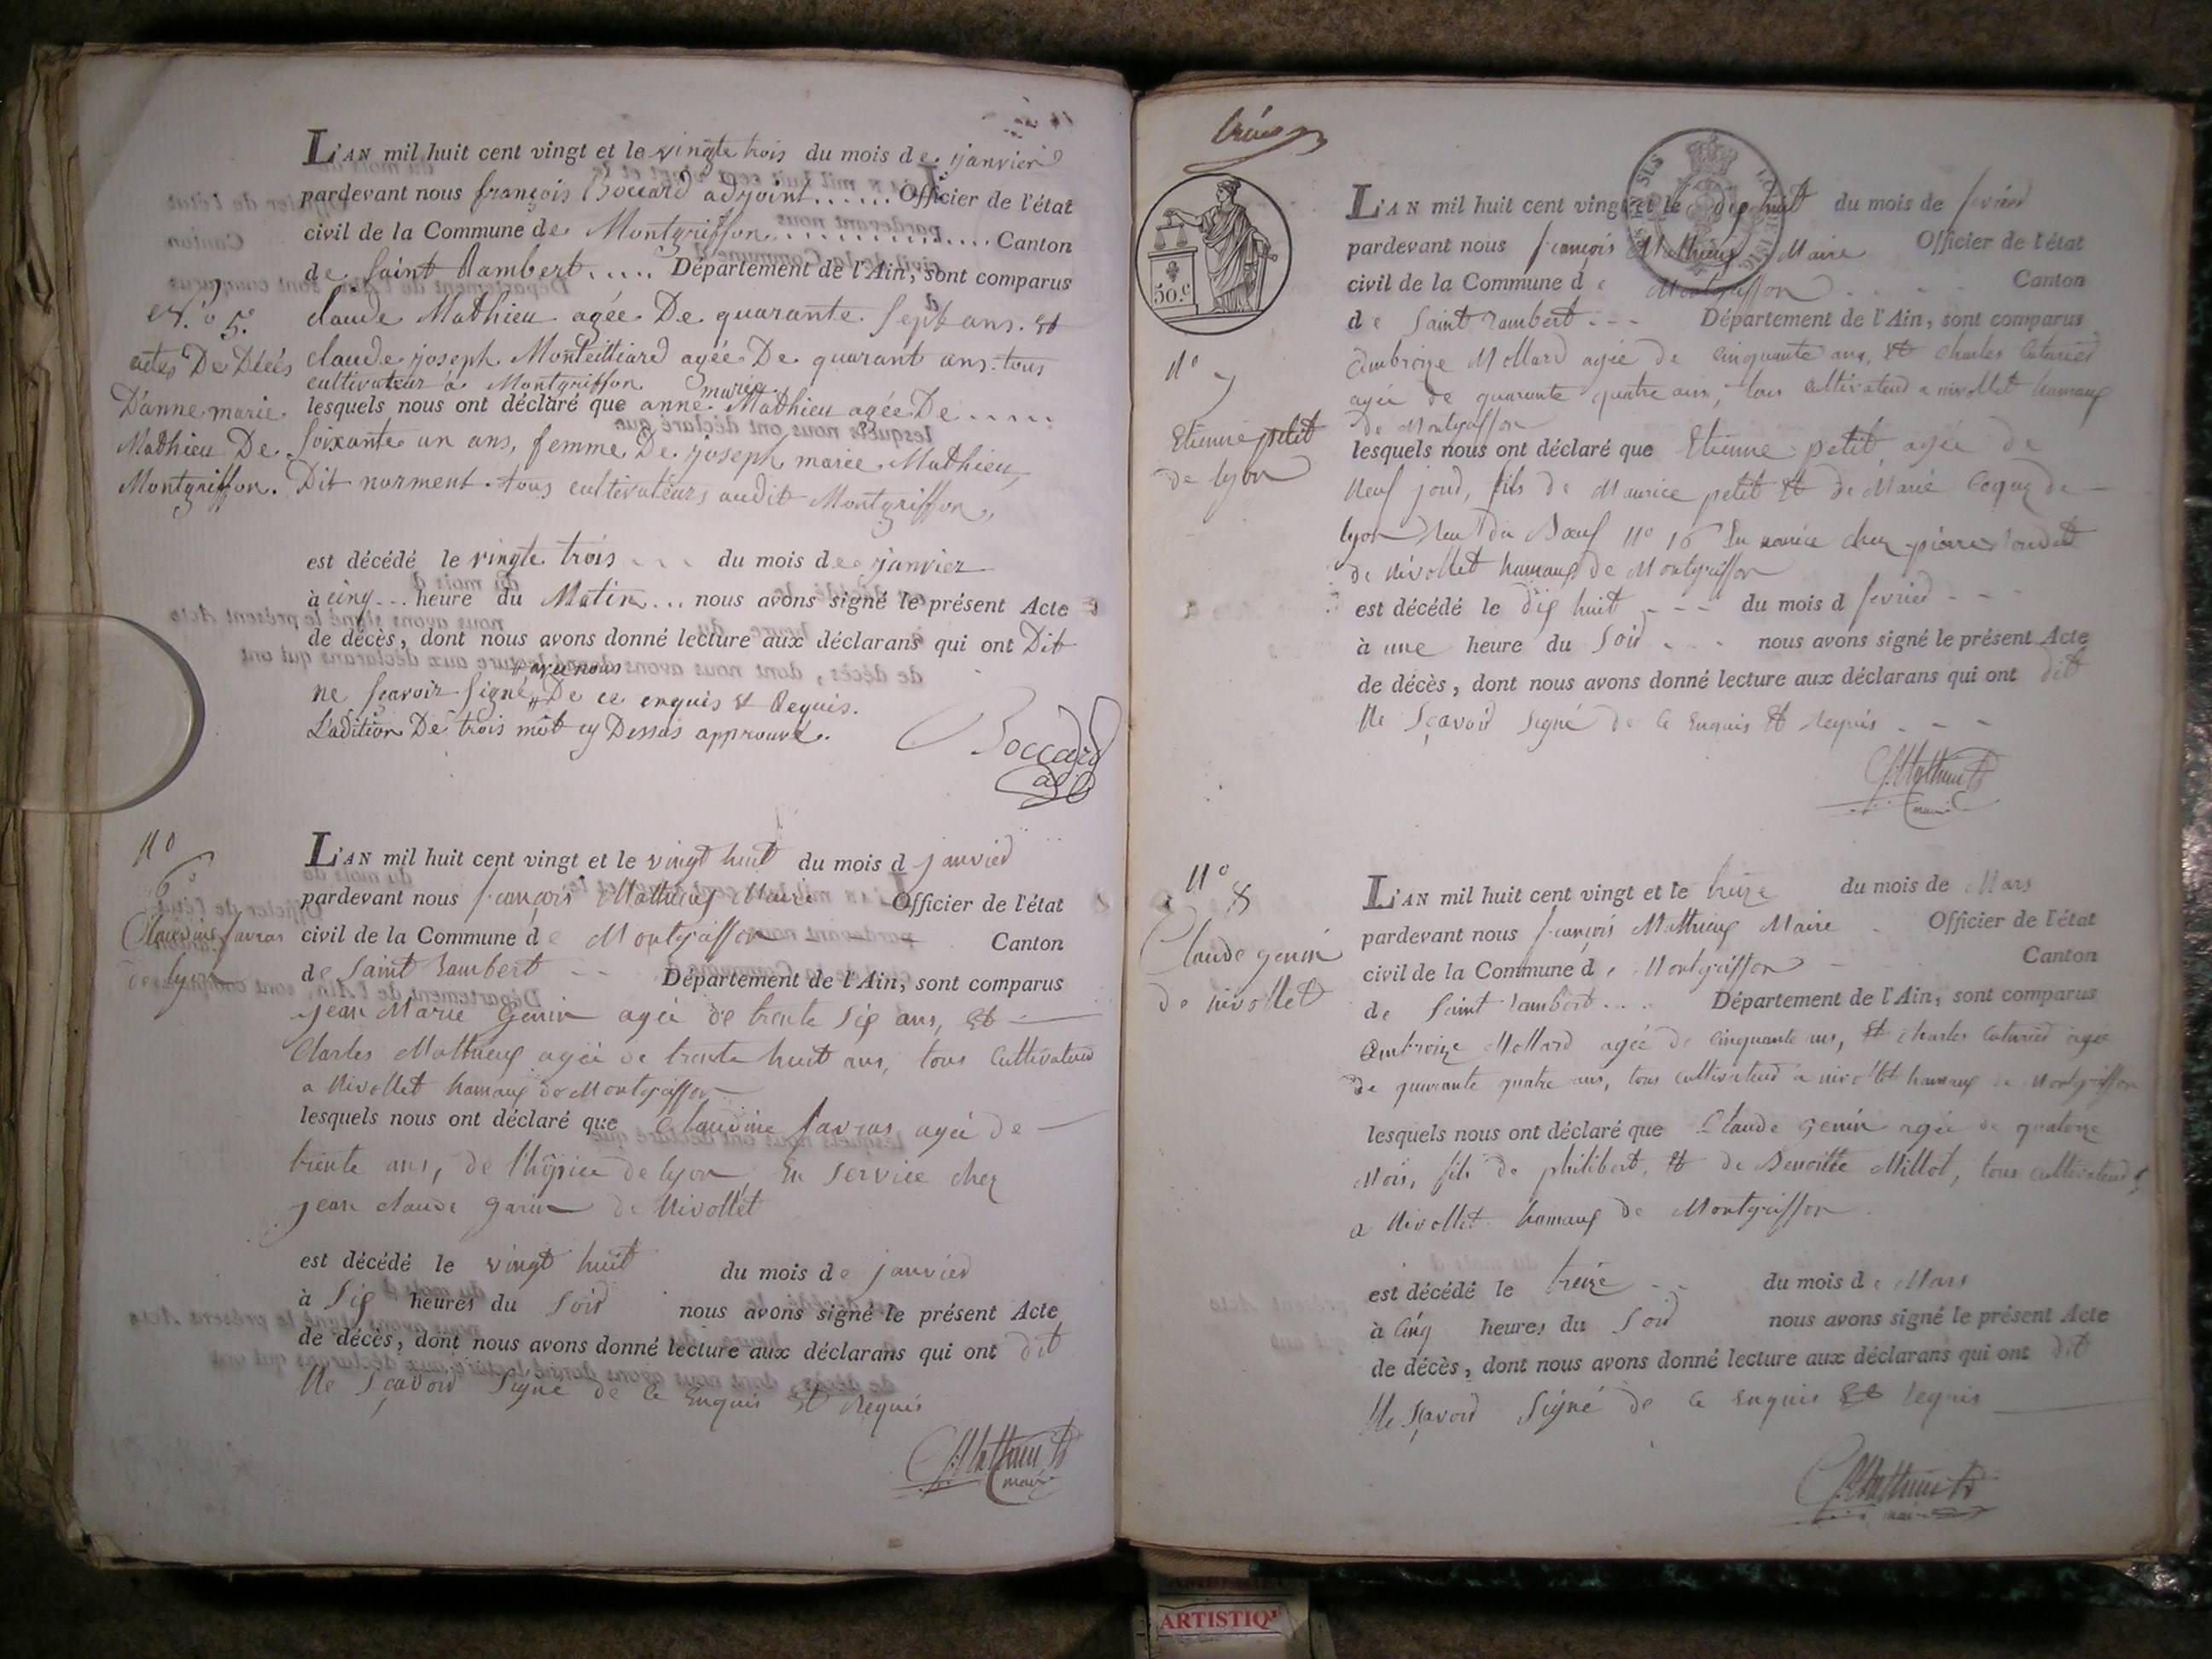 L'AN mil huit cent vingt et le vingte trois du mois de janvier
pardevant nous françois Boccard adjoint ...... Officier de l'état
civil de la Commune de Montgriffon ............... Canton
de Saint Rambert ..... Département de l'Ain, sont comparus
claude Mathieu agée De quarante Sept ans. et
claude joseph Monteilliard agée De quarant ans. tous
cultivateur à Montgriffon
lesquels nous ont déclaré que anne marie Mathieu agée De .....
Soixante un ans, femme De joseph marie Mathieu,
Dit norment. tous cultivateurs audit Montgriffon,
est décédé le vingte trois ... du mois de janvier
à cinq ... heure du Matin ... nous avons signé le présent Acte
de décès, dont nous avons donné lecture aux déclarans qui ont Dit
ne sçavoir Signé, avec nous De ce enquis & Requis.
L'adition De trois môt cy Dessus approuvé.
Boccard
adj
N.º 5.
actes De Décès
D'anne marie
Mathieu De
Montgriffon.
Nº
6º
Claudine favras
de lyon
L'AN mil huit cent vingt et le vingt huit du mois d janvier
pardevant nous françois Mathieux Maire Officier de l'état
civil de la Commune de Montgriffon Canton
de Saint Rambert Département de l'Ain, sont comparus
jean Marie Genin agée de trente Six ans, et
Charles Mathieux agée de trente huit ans, tous Cultivateur
a Nivollet hamaux de Montgriffon
lesquels nous ont déclaré que Claudine favras agée de
trente ans, de l'hôpice de lyon, En Service chez
jean claude garin de Nivollet
est décédé le vingt huit du mois de janvier
à Six heures du Soir nous avons signé le présent Acte
de décès, dont nous avons donné lecture aux déclarans qui ont dit
Ne Sçavoir Signé de Ce Enquis et Requis
f. Mathieux
maire
50.c
Nº 7
Etienne petit
de lyon
L'AN mil huit cent vingt et le dix huit du mois de fevrier
pardevant nous françois Mathieux Maire Officier de l'état
civil de la Commune de Montgriffon .... Canton
de Saint Rambert --- Département de l'Ain, sont comparus
Ambroize Mollard agée de Cinquante ans, et Charles Caturier
agée de quarante quatre ans, tous Cultivateur a nivollet hamaux
de Montgriffon
lesquels nous ont déclaré que Etienne petit agée de
Neuf jour, fils de Maurice petit et de Marie de
lyon Rue du Bœuf Nº 16 En nourice chez pierre
de Nivollet hamaux de Montgriffon
est décédé le dix huit --- du mois d fevrier ---
à une heure du Soir ... nous avons signé le présent Acte
de décès, dont nous avons donné lecture aux déclarans qui ont dit
Ne Sçavoir Signé de Ce Enquis et Requis
f. Mathieux
maire
Nº 8
Claude genin
de nivollet
L'AN mil huit cent vingt et le treize du mois de Mars
pardevant nous françois Mathieux Maire Officier de l'état
civil de la Commune de Montgriffon Canton
de Saint Rambert .... Département de l'Ain, sont comparus
Ambroize Mollard agée de Cinquante ans, et Charles Caturier agée
de quarante quatre ans, tous cultivateur a nivollet hamaux de Montgriffon
lesquels nous ont déclaré que Claude genin agée de quatorze
Mois, fils de philibert, et de Benoitte Millot, tous cultivateur
a Nivollet hamaux de Montgriffon
est décédé le treize -- du mois de Mars
à Cinq heures du Soir nous avons signé le présent Acte
de décès, dont nous avons donné lecture aux déclarans qui ont dit
Ne Sçavoir Signé de Ce Enquis et Requis
f. Mathieux
maire
ARTISTIQ